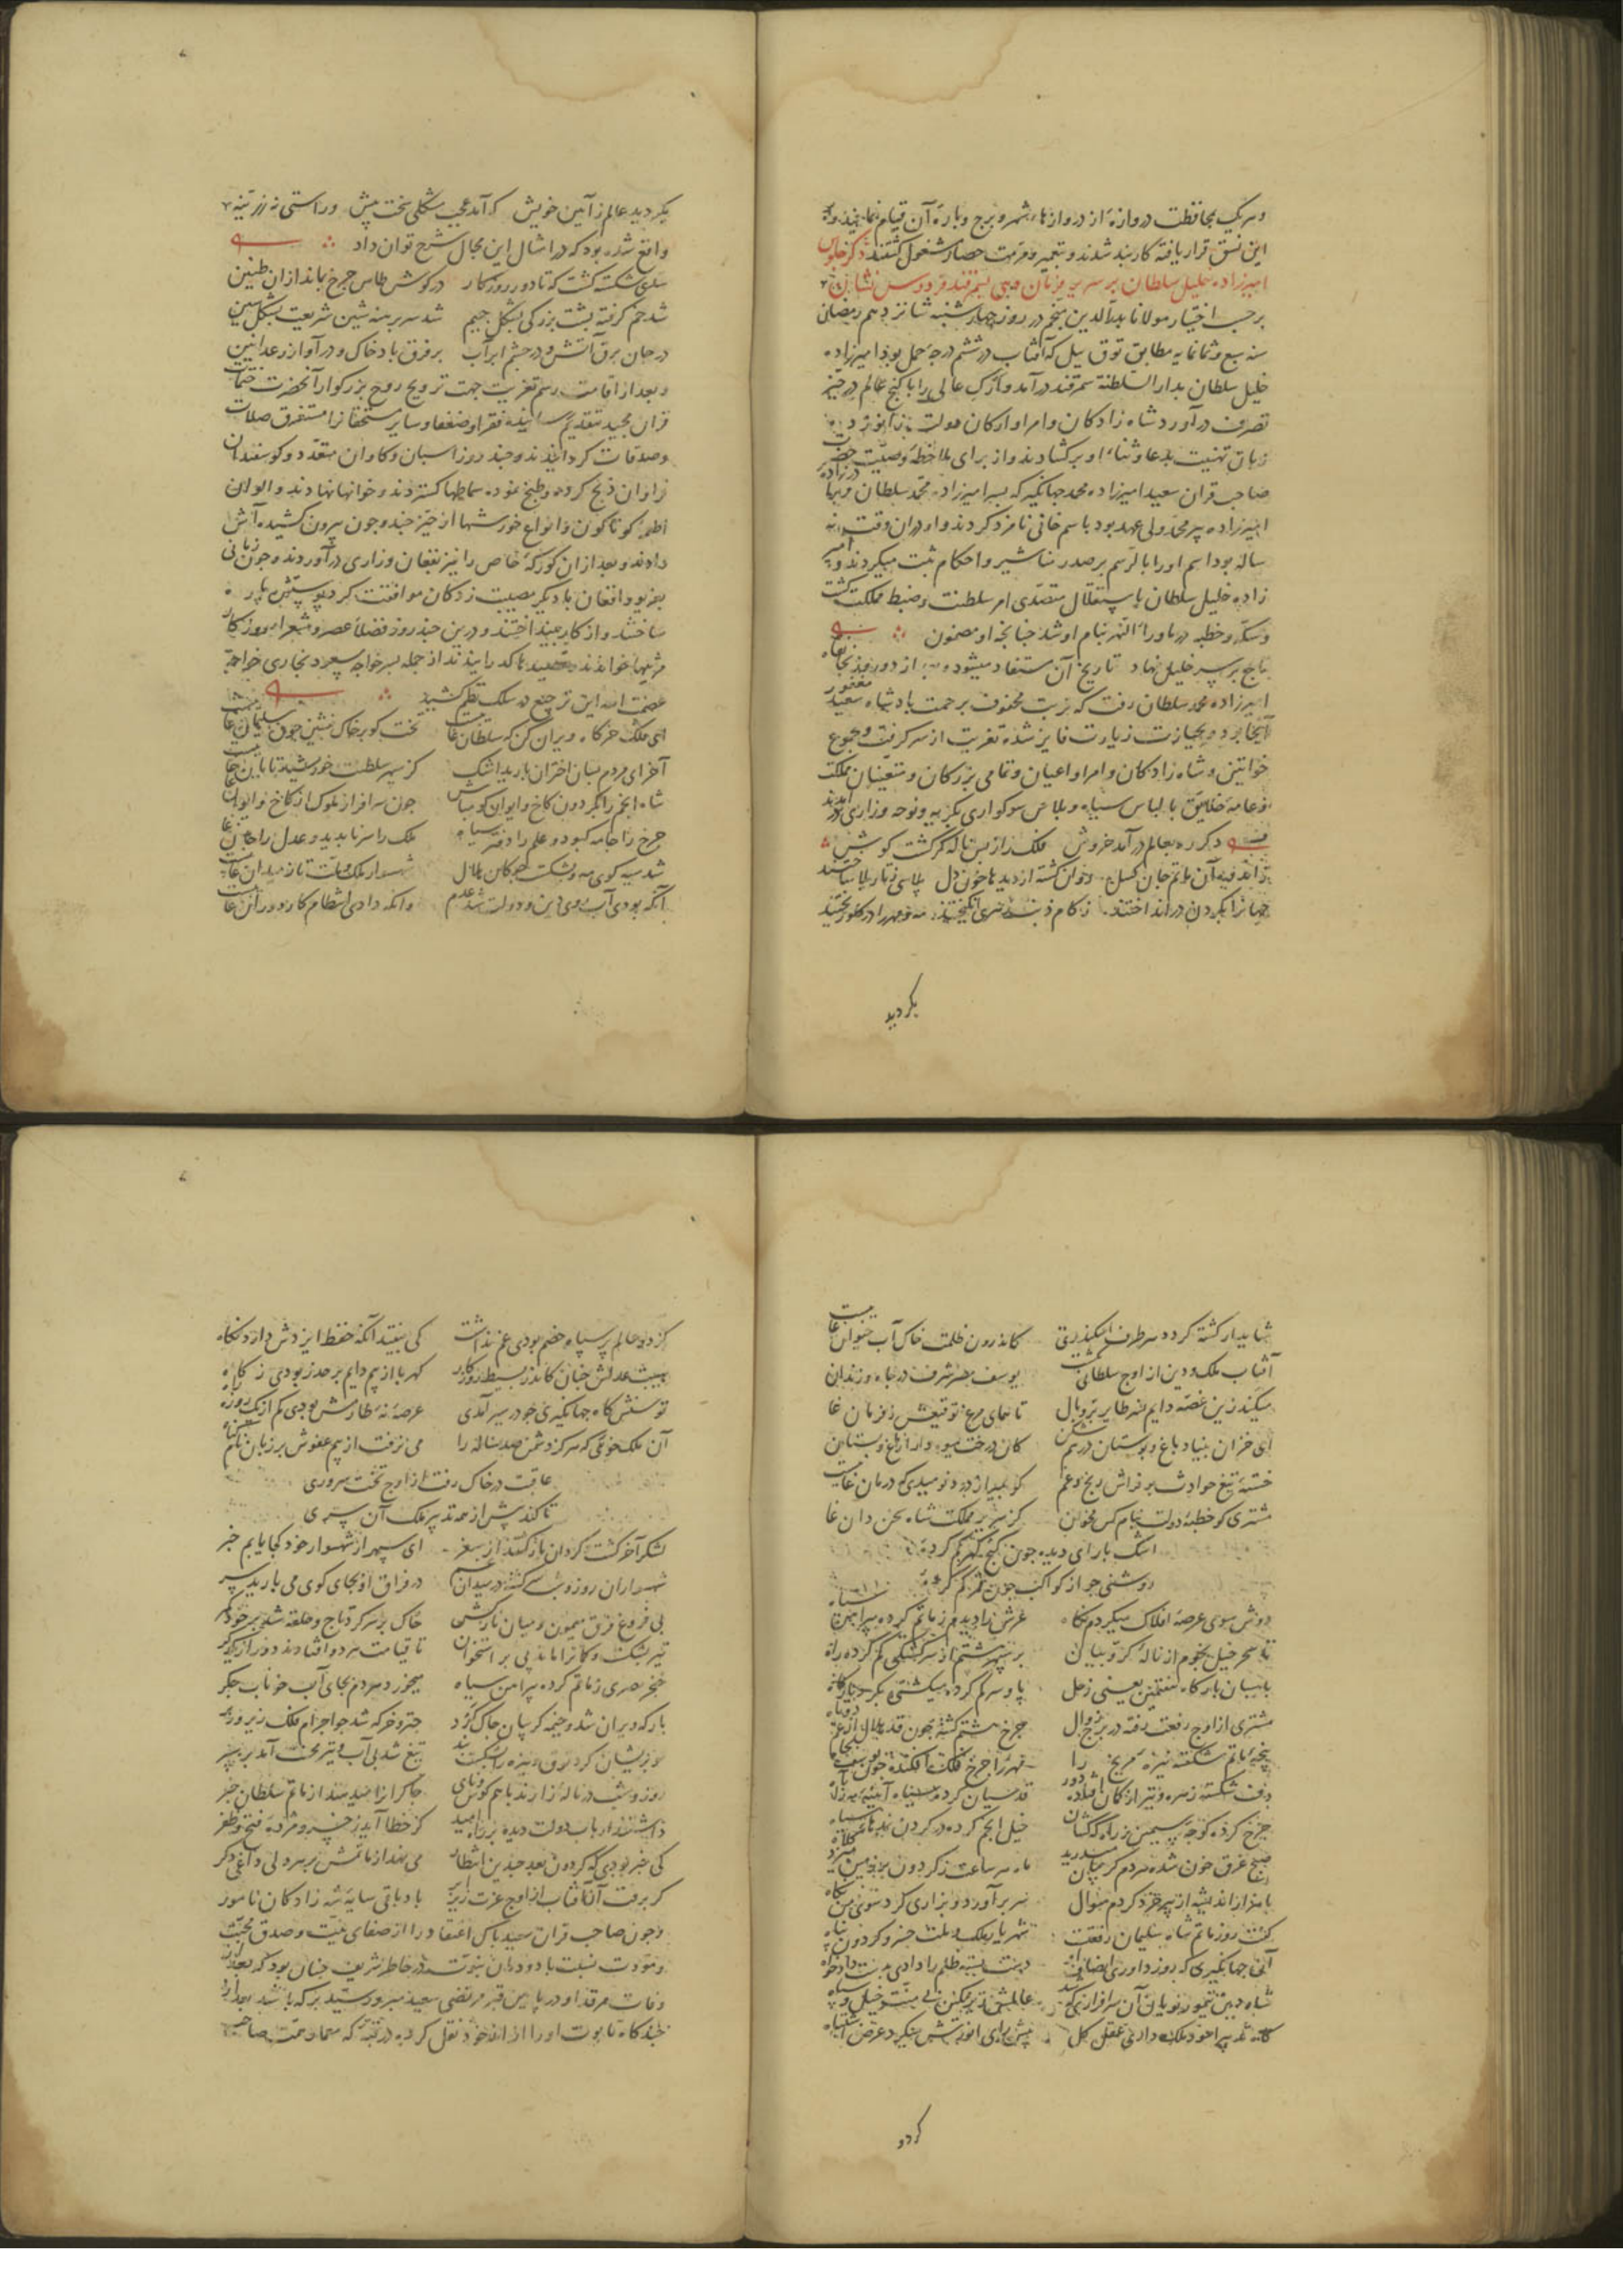 و هر یک بمحافظت دروازهٔ از دروازهاء شهر و برج و بارهٔ آن قیام نمایند و بر
این نسق قرار یافته کاربند شدند و بتعمیر و مرمت حصار مشغول گشتند ذکر جلوس
امیرزاده خلیل سلطان بر سریر فرمان دهی سمرقند فردوس نشان
بر حسب اختیار مولانا بدرالدین منجم در روز چهارشنبه شانزدهم رمضان
سنه سبع و ثمانمایه مطابق توق ییل که آفتاب در ششم درجهٔ حمل بود امیرزاده
خلیل سلطان بدار السلطنة سمرقند درآمد و ارک عالی را با گنج عالم در حیز
تصرف درآورد شاه زادکان و امرا و ارکان دولت زانو زده
زبان تهنیت بدعا و ثناء او برکشادند و از برای ملاحظهٔ وصیت حضرت
صاحب قران سعید امیرزاده محمد جهانگیر که پسر امیرزاده محمد سلطان و برادرزاده
امیرزاده پیر محمد ولی عهد بود باسم خانی نامزد کردند و او در آن وقت نه
ساله بود اسم او را بالرسم بر صدر مناشیر و احکام ثبت میکردند و امیر
زاده خلیل سلطان باستقلال متصدی امر سلطنت و ضبط مملکت گشت
و سکه و خطبه در ماوراء النهر بنام او شد چنانچه از مضمون
تاج بر سر خلیل نهاد تاریخ آن مستفاد میشود بعد از دو روز بخانقاه
امیرزاده محمد سلطان رفت که تربت محفوف برحمت بادشاه سعید مغفور
آنجا بود و بحیازت زیارت فایز شده تعزیت از سر گرفت و مجموع
خواتین و شاه زادکان و امرا و اعیان و تمامی بزرکان و متعینان مملکت
و عامهٔ خلایق با لباس سیاه و پلاس سوکواری بگریه و نوحه و زاری
دکر ره بعالم درآمد خروش فلک را ز بس ناله کر گشت گوش
روان گشته از دیدها خون دل پلاسی ز تار بلا ساختند
جهانرا بگردن در انداختند
بکردید
بکردید عالم ز آیین خویش که آمد عجب مشکلی سخت پیش و راستی نه رزیتیه
واقع شده بود که در امثال این مجال شرح توان داد
سدی شکسته گشت که تا دور روزکار در گوش طاس چرخ بماند از ان طنین
شد خم گرفته پشت بزرگی بشکل جیم شد سر برهنه شین شریعت بشکل سین
در جان برق آتش و در چشم ابر آب بر فرق باد خاک و در آواز رعد انین
و بعد از اقامت رسم تعزیت جهت ترویح روح بزرکوار آنحضرت ختمات
قرآن مجید بتقدیم رسانیده فقرا و ضعفا و سایر مستحقانرا مستغرق صلات
و صدقات گردانیدند و چند روز اسبان و کاوان متعدد و کوسفندان
فراوان ذبح کرده و طبخ نموده سماطها کستردند و خوانها نهادند و الوان
اطعمهٔ کوناکون و انواع خورشها از حیز چند و چون بیرون کشیده آش
دادند و بعد از ان کورکهٔ خاص را نیز بفغان و زاری درآوردند و چون زمانی
بغریو و افغان با دیکر مصیبت زدکان موافقت کرد پوستش پاره
ساختند و از کار بینداختند و درین چند روز فضلاء عصر و شعراء روزکار
مرثیها خواندند و قصیدها کذرانیدند از جمله پسر خواجه مسعود بخاری خواجه
عصمت الله این ترجیع در سلک نظم کشید
ای فلک خرکاه ویران کن که سلطان غایبست تخت کو بر خاک نشین چون سلیمان غایبست
آخر ای مردم بسان اختران بارید اشک کز سپهر سلطنت خورشید تابان غایبست
شاه انجم را بگردون کاخ و ایوان گو مباش چون سرافراز ملوک از کاخ و ایوان
چرخ را جامه کبود و علم را دفتر سیاه ملک را سر ناپدید و عدل را جان غایبست
شد سیه کوی مه و بشکست چوکان هلال شهسوار ملک و ملت تا ز میدان غایبست
آنکه بودی آبروی دین و دولت شد عدم وانکه دادی انتظام کار دوران غایبست
شاید ار گشته کرد هر طرف اسکندری کاندرون ظلمت خاک آب حیوان غایبست
آفتاب ملک و دین از اوج سلطانی گشت یوسف مصر شرف در چاه و زندان
میکند زین غصه دایم نسر طایر پر و بال تا همای مرغ توقیعش ز فرمان غا
ای خزان بنیاد باغ و بوستان در هم شکن کان درخت میوه دار از باغ و بستان
خستهٔ تیغ حوادث بر فراش رنج و غم کو بمیر از درد نومیدی که درمان غایبست
مشتری کو خطبهٔ دولت بنام کس مخوان کز سریر مملکت شاه سخن دان غا
اشک بار ای دیده چون گنج گهر گم کردهٔ
روشنی جو از کواکب چون قمر گم کردهٔ
دوش سوی عرصهٔ افلاک میکردم نکاه عرش را دیدم ز ماتم کرده پیراهن سیاه
تا سحر خیل نجوم از نالهٔ کروبیان بر سپهر هشتم از سرگشتگی گم کرده راه
پاسبان بارکاه هفتمین یعنی زحل پا و سر گم کرده میگشتی بگرد بارکاه
مشتری از اوج رفعت رفته در برج وبال چرخ هشتم گشته همچون قد هلال از غم دوتاه
پنجهٔ ماتم شکسته نیزهٔ مریخ را مهر را چرخ فلک افکنده چون یوسف بچاه
دف شکسته زهره و تیر از کمان افتاده دور قدسیان کرده سیاه آیینهٔ مه را ز آه
چرخ کرده کوچهٔ سیمین ز راه کهکشان خیل انجم کرده در گردن نمدهای سیاه
صبح غرق خون شده هر دم گریبان میدرید ماه هر ساعت ز گردون بر زمین میزد کلاه
بامداد از اندیشه از پیر خرد کردم سوال سر برآورد و بزاری کرد سوی من نگاه
گفت روز ماتم شاه سلیمان رفعت شهریار ملک و ملت خسرو گردون پناه
آن جهانگیری که روز داوری انصاف او دست بسته ظلم را دادی بدست داد خواه
شاه دین تیمور نویان آن سرافرازی که شد عالمش زیر نگین بی منت خیل و سپاه
پیش رای انورش میکرد عرض اشتباه
کردو
گر دو عالم پر سپاه خصم بودی غم نداشت کی بیفتد آنکه حفظ ایزدش دارد نگاه
هیبت عدلش چنان کاندر بسیط روزگار کهربا از بیم دایم بر حذر بودی ز کاه
توسنش گاه جهانگیری چو در سیر آمدی عرصهٔ نه طارمش بودی کم از یک روزه راه
آن ملک خویی که هر گز دشمن صد ساله را می نرفت از بیم عفوش بر زبان نام گناه
عاقبت در خاک رفت از اوج تخت سروری
تا کند پیش از همه تدبیر ملک آن سری
لشکر آخر گشت گردان باز گشتند از سفر ای سپهر از شهسوار خود کجا یابم خبر
شهسواران روز و شب سرگشته در میدان غم در فراق او بجای کوی می بازید سر
بی فروغ فرق میمون و میان نازکش خاک بر سر کرد تاج و حلقه شد بر خود کمر
تیر بشکست و کمانرا ماند پی بر استخوان تا قیامت هر دو افتادند دور از یکدکر
خنجر مصری ز ماتم کرده پیراهن سیاه میخورد هر دم بجای آب خوناب جگر
بارکه ویران شد و خیمه گریبان چاک کرد چتر و خرگه شد چو اجرام فلک زیر و زبر
مو پریشان کرد بیرق نیزه را بشکست بند تیغ شد بی آب و تیر سخت آمد بر سپر
روز و شب در ناله زارند با هم کوس و نای چاکرانرا میدهند از ماتم سلطان خبر
داشتند ارباب دولت دیده بر راه امید کز خطا آید ز خسرو مژدهٔ فتح و ظفر
کی خبر بودی که گردون بعد چندین انتظار می نهد از ماتمش بر هر دلی داغی دکر
گر برفت آن آفتاب از اوج عزت زیر ابر باد باقی سایهٔ شه زادکان نامور
و چون صاحب قران سعید پاک اعتقاد را از صفای نیت و صدق محبت
و مودت نسبت با دودمان نبوت در خاطر شریف چنان بود که بعد از
وفات مرقد او در پایین قبر مرتضی سعید میرود سید برکه باشد بعد از
چندگاه تابوت او را از انجا نقل کرده در قبه که معمار همت صاحب